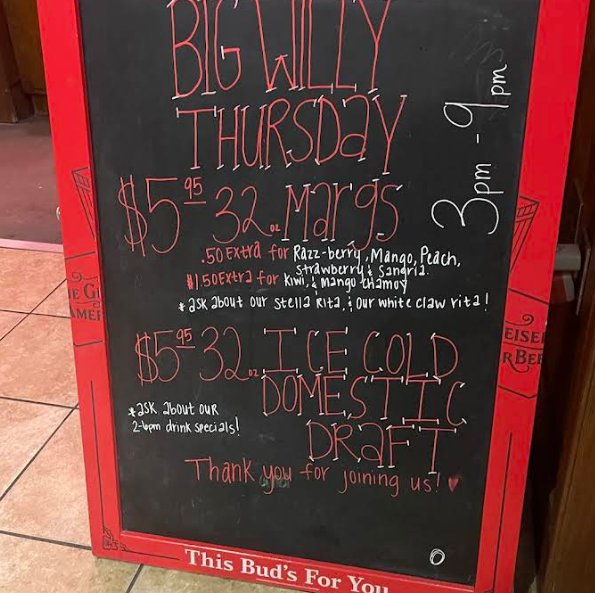 BIG WILLY
THURSDAY
3pm - 9pm
$5 95 32 oz Margs
.50 Extra for Razz-berry, Mango, Peach,
Strawberry & Sangria.
$1.50 Extra for Kiwi, & Mango thamoy
*ask about our Stella Rita, & our white claw rita!
$5 95 32 oz ICE COLD
DOMESTIC
DRAFT
*ask about our
2-6pm drink specials!
Thank you for joining us!
This Bud's For You
EISE
RBEE